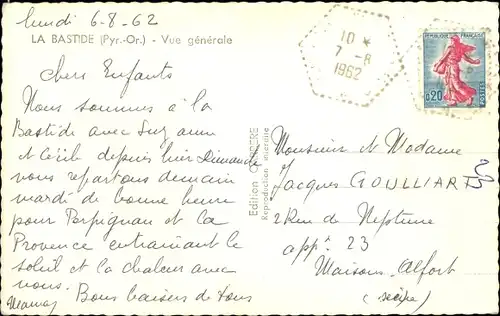 lundi 6-8-62
LA BASTIDE (Pyr.-Or.) - Vue générale
chers Enfants
Nous sommes à la
Bastide avec Suzanne
et Cécile depuis hier Dimanche
nous repartons demain
mardi de bonne heure
pour Perpignan et la
Provence entrainant le
soleil et la chaleur avec
nous. Bons baisers de tous
Maman
Edition
Reproduction interdite
10 *
7 - 8
1962
REPUBLIQUE FRANÇAISE
0,20
POSTES
Monsieur et Madame
Jacques GOULLIART
2 Rue de Neptune
appt. 23
Maisons-Alfort
(seine)